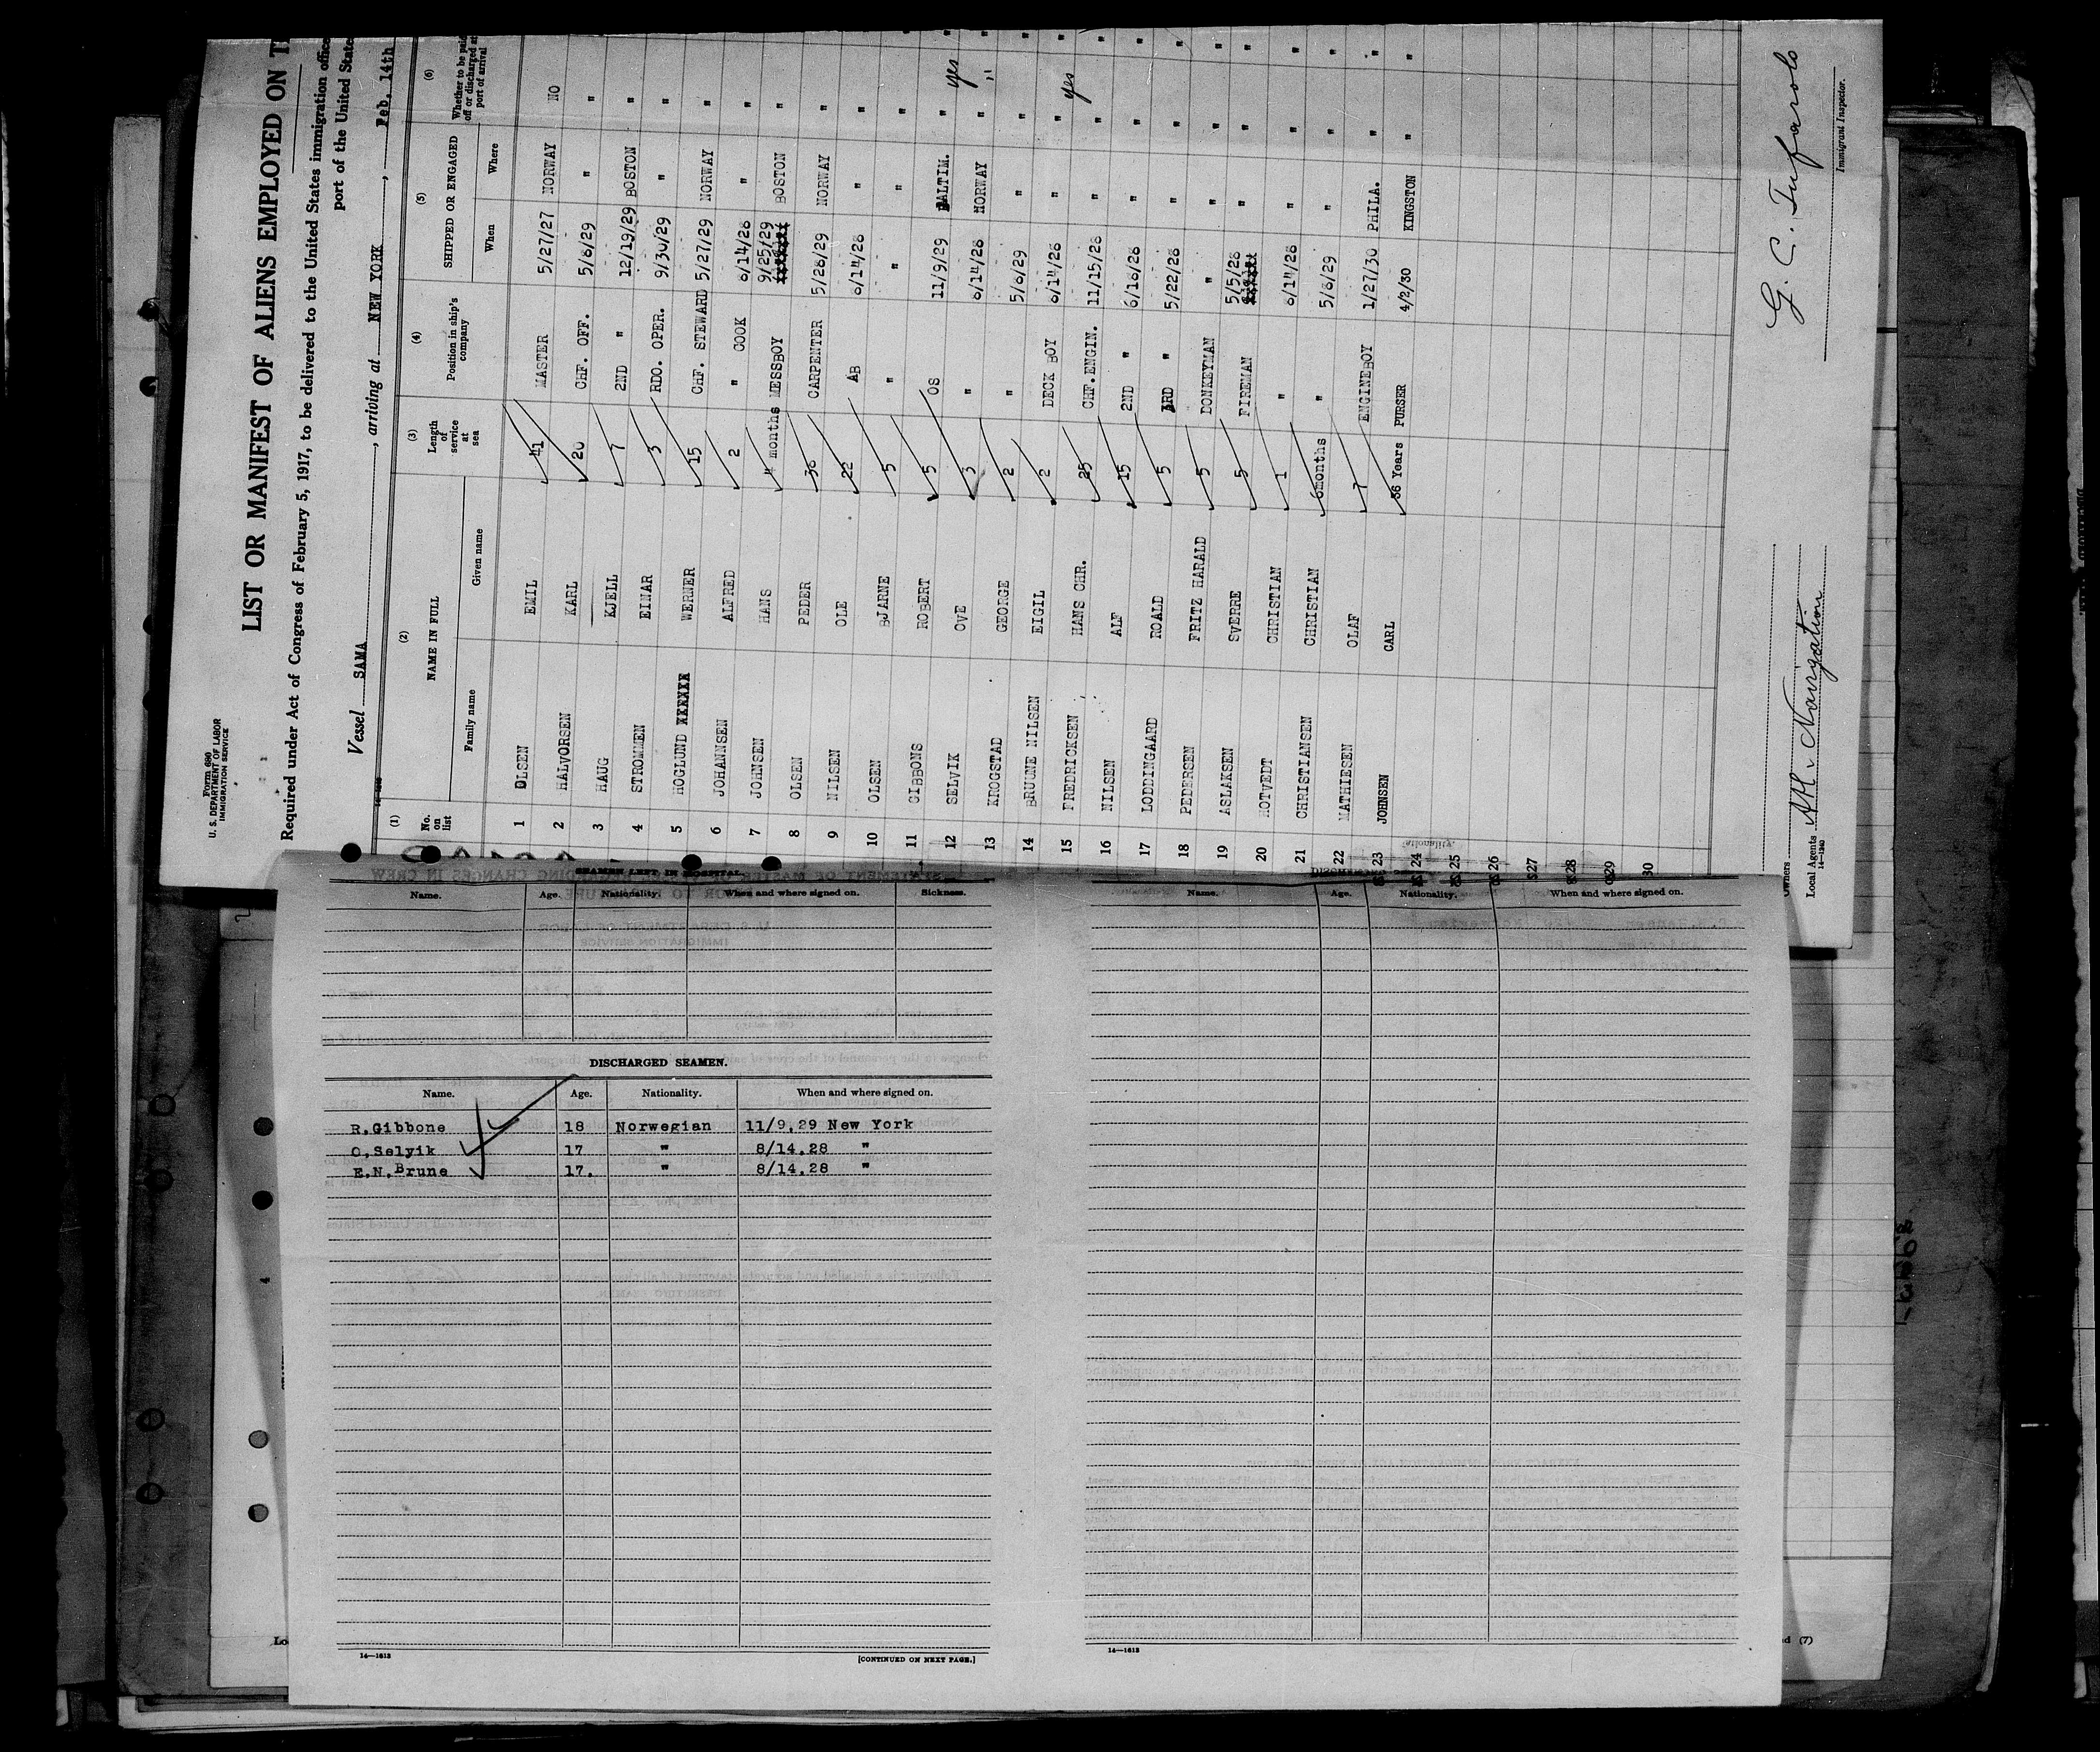 Form 686
U. S. DEPARTMENT OF LABOR
IMMIGRATION SERVICE
LIST OR MANIFEST OF ALIENS EMPLOYED ON
Required under Act of Congress of February 5, 1917, to be delivered to the United States immigration
port of the United
Vessel SAMA, arriving at NEW YORK, Feb. 14th
(1) (2) (3) (4) (5) (6)
No. on list NAME IN FULL Length of service at sea Position in ship's company SHIPPED OR ENGAGED Whether to be paid off or discharged at port of arrival
Family name Given name When Where
1 OLSEN EMIL 41 MASTER 5/27/27 NORWAY NO
2 HALVORSEN KARL 20 CHF. OFF. 5/6/29 " "
3 HAUG KJELL 7 2ND " 12/19/29 BOSTON "
4 STROMMEN EINAR 3 RDO. OPER. 9/30/29 " "
5 HOGLUND XXXXXX WERNER 15 CHF. STEWARD 5/27/29 NORWAY "
6 JOHANNSEN ALFRED 2 " COOK 8/14/28 " "
7 JOHNSEN HANS 4 months MESSBOY 9/25/29 BOSTON "
8 OLSEN PEDER 38 CARPENTER 5/28/29 NORWAY "
9 NILSEN OLE 22 AB 8/14/28 " "
10 OLSEN BJARNE 5 " " " "
11 GIBBONS ROBERT 5 OS 11/9/29 BALTIM. " yes
12 SELVIK OVE 3 " 8/14/28 NORWAY " "
13 KROGSTAD GEORGE 2 " 5/6/29 " "
14 BRUUNE NILSEN EIGIL 2 DECK BOY 8/14/28 " " yes
15 FREDRICKSEN HANS CHR. 25 CHF. ENGIN. 11/15/28 " "
16 NILSEN ALF 15 2ND " 6/16/28 " "
17 LODDINGAARD ROALD 5 3RD " 5/22/28 " "
18 PEDERSEN FRITZ HARALD 5 DONKEYMAN " " "
19 ASLAKSEN SVERRE 5 FIREMAN 5/5/28 " "
20 HOTVEDT CHRISTIAN 1 " 8/14/28 " "
21 CHRISTIANSEN CHRISTIAN 6 months " 5/6/29 " "
22 MATHIESEN OLAF 7 ENGINEBOY 1/27/30 PHILA. "
23 JOHNSEN CARL 36 Years PURSER 4/2/30 KINGSTON "
24
25
26
27
28
29
30
Owners
Local Agents Atl. Navigation
14—1240
G. C. Tufarolo
Immigrant Inspector.
SEAMEN LEFT IN HOSPITAL.
Name. Age. Nationality. When and where signed on. Sickness.
DISCHARGED SEAMEN.
Name. Age. Nationality. When and where signed on.
R.Gibbone 18 Norwegian 11/9.29 New York
O.Selyik 17 " 8/14.28 "
E.N.Brune 17. " 8/14.28 "
14—1613
[CONTINUED ON NEXT PAGE.]
Name. Age. Nationality. When and where signed on.
14—1613